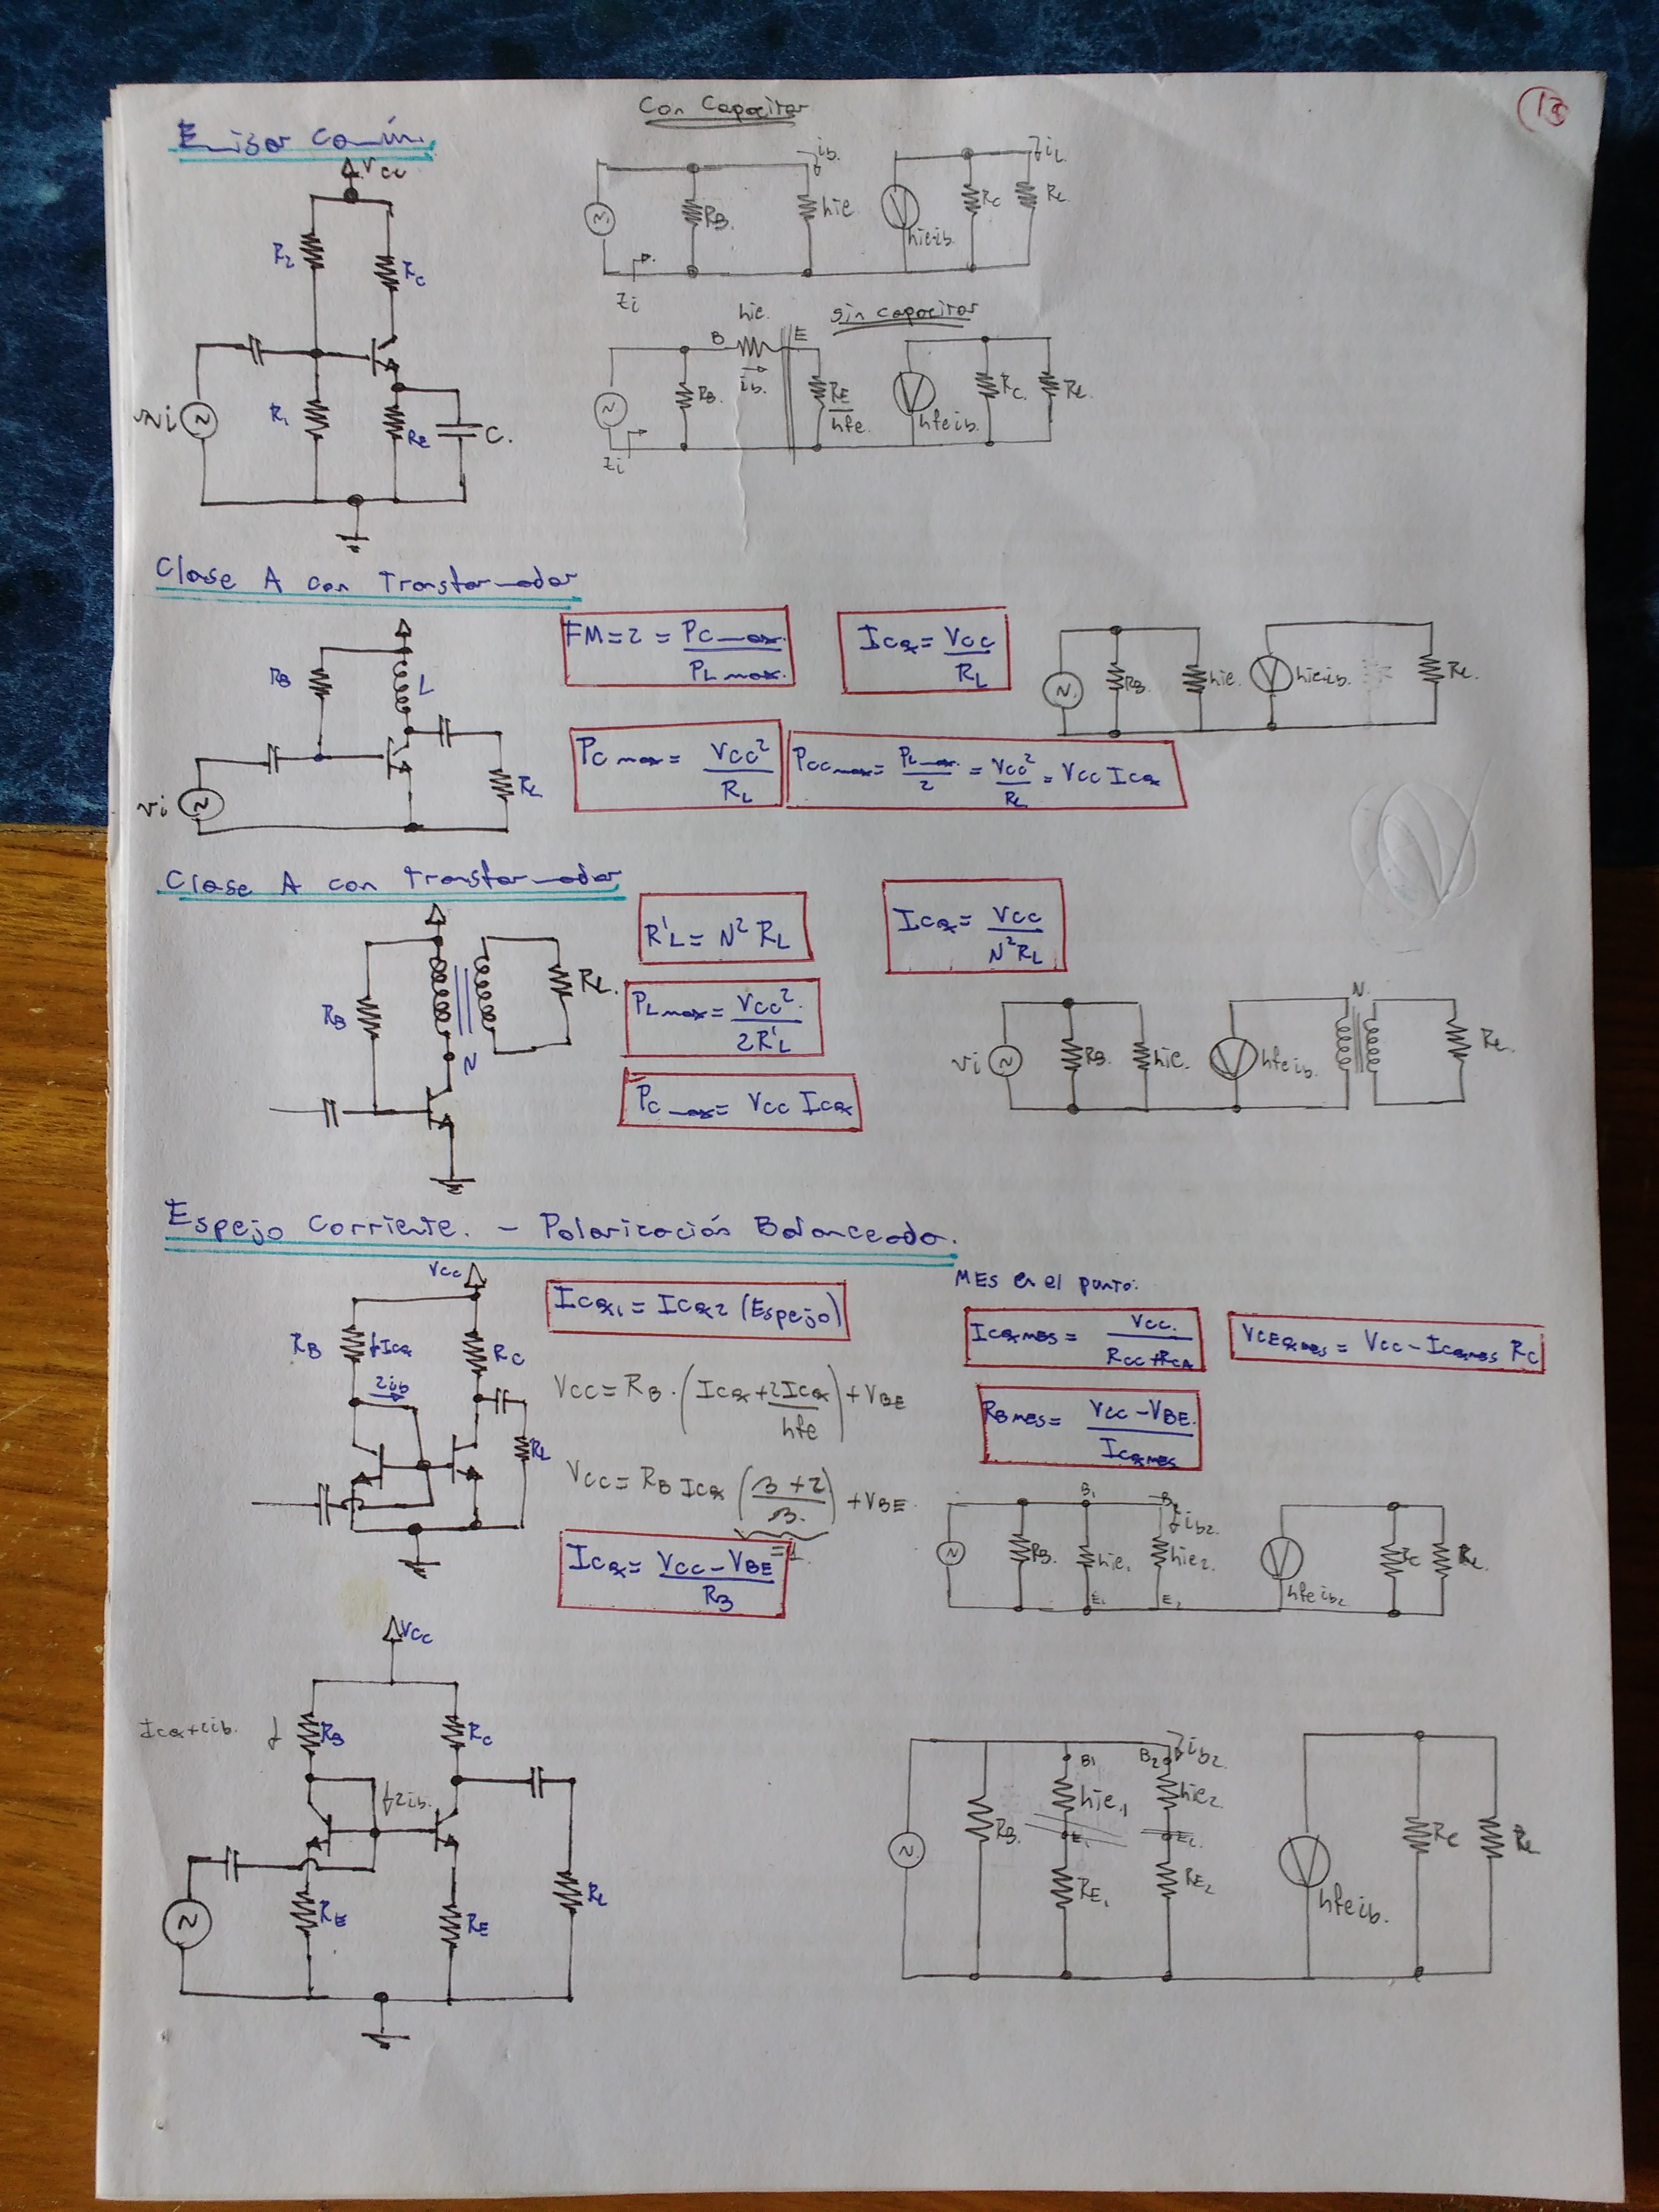 13
Emisor Común.
Con Capacitor
Vcc
R2
Rc
R1
RE
C.
vi
ib.
iL
RB.
hie
hie·ib.
Rc
RL
Zi
sin capacitor
hie.
B
E
ib.
RB.
RE/hfe.
hfeib.
RC.
RL
Zi
Clase A con Transformador
RB
L
RL
vi
FM=2 = PC max. / PL max.
ICQ = VCC / RL
PC max = VCC² / RL
PCCmax = PL max. / 2 = VCC² / RL = VCC ICQ
RB.
hie.
hie·ib.
RL.
Clase A con Transformador
RB
N
RL.
R'L = N² RL
ICQ = VCC / N²RL
PL max = VCC². / 2R'L
PC max = VCC ICQ
vi
RB.
hie.
hfeib.
N.
RL.
Espejo Corriente. - Polarización Balanceada.
Vcc
RB
ICQ
2ib
RC
RL
ICQ1 = ICQ2 (Espejo)
VCC = RB · (ICQ + 2ICQ / hfe) + VBE
VCC = RB ICQ (β + 2 / β.) + VBE.
=1.
ICQ = VCC - VBE / RB
MES en el punto:
ICQMES = VCC. / RCC + RCA
VCEQMES = VCC - ICQMES RC
RBMES = VCC - VBE. / ICQMES
B1
B2
ib2.
RB.
hie1
hie2.
E1
E2
hfeib2
RC
RL.
VCC
ICQ+2ib.
RB
RC
2ib.
RE
RE
RL
B1
B2
ib2
RB.
hie1
hie2
E1
E2.
RE1
RE2
hfeib.
RC
RL